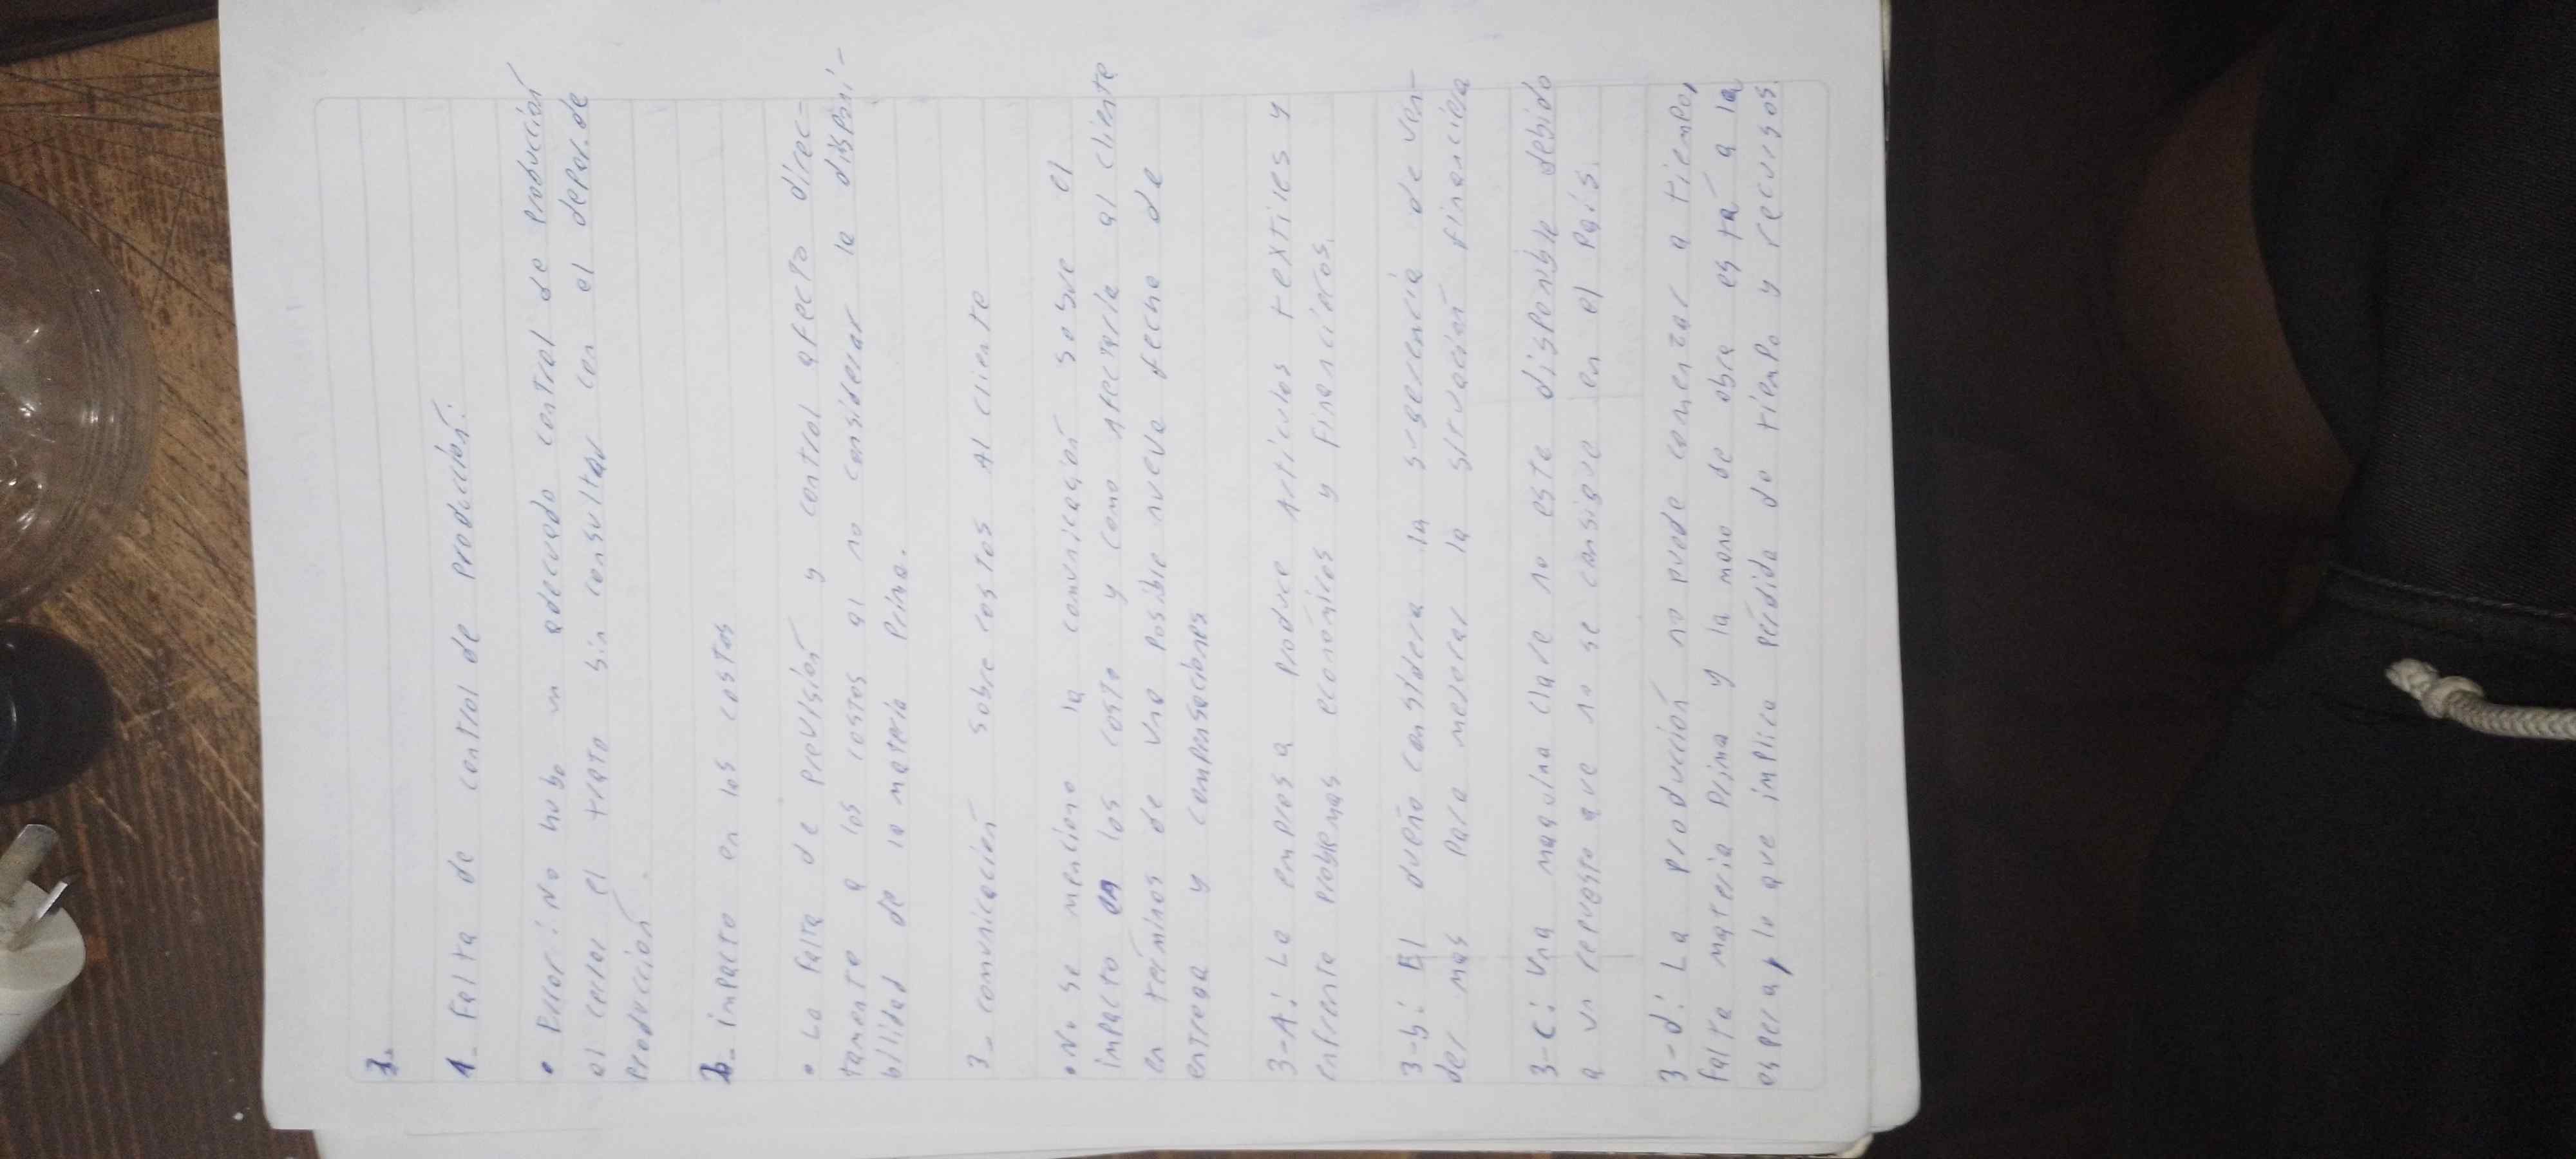 3.
1- Falta de control de producción:
• Error: No hubo un adecuado control de producción
al cerrar el trato sin consultar con el depar. de
producción.
2- impacto en los costos
• La falta de previsión y control afecto direc-
tamente a los costos al no considerar la disponi-
bilidad de la materia prima.
3- comunicación sobre costos al cliente
• No se menciono la comunicación sobre el
impacto en los costo y como afectaria al cliente
en términos de una posible nueva fecha de
entrega y compensaciones
3-A: La empresa produce Artículos textiles y
enfrenta problemas económicos y financieros.
3-b: El dueño considera la sugerencia de ven-
der mas para mejorar la situación financiera
3-C: Una maquina clave no este disponible debido
a un repuesto que no se consigue en el País.
3-d: La producción no puede comenzar a tiempo,
falta materia prima y la mano de obra está a la
espera, lo que implica pérdida de tiempo y recursos.